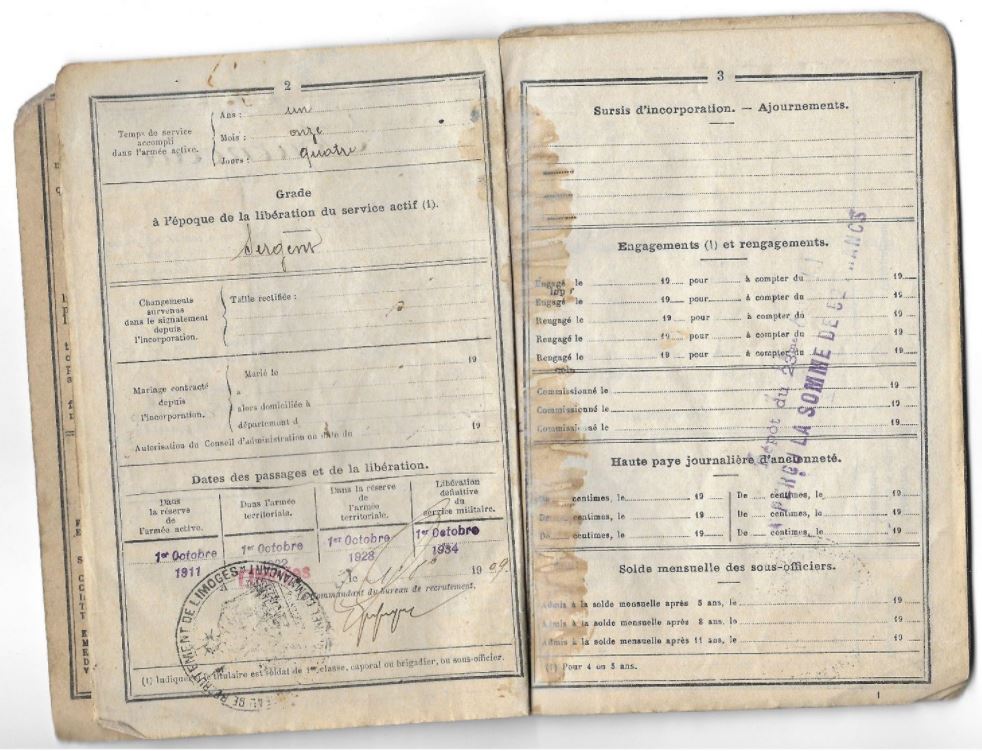 2
Temps de service accompli dans l'armée active.
Ans : un
Mois : onze
Jours : quatre
Grade
à l'époque de la libération du service actif (1).
Sergent
Changements survenus dans le signalement depuis l'incorporation.
Taille rectifiée :
Mariage contracté depuis l'incorporation.
Marié le 19
à
alors domiciliée à
département d
Autorisation du Conseil d'administration en date du 19
Dates des passages et de la libération.
Dans la réserve de l'armée active.
Dans l'armée territoriale.
Dans la réserve de l'armée territoriale.
Libération définitive du service militaire.
1er Octobre 1911
1er Octobre
1er Octobre 1928
1er Octobre 1934
LIMOGES
le 19
commandant du bureau de recrutement,
RECRUTEMENT DE LIMOGES
(1) Indiquer le titulaire est soldat de 1re classe, caporal ou brigadier, ou sous-officier.
3
Sursis d'incorporation. — Ajournements.
Engagements (1) et rengagements.
Engagé le 19 pour à compter du 19
Engagé le 19 pour à compter du 19
Rengagé le 19 pour à compter du 19
Rengagé le 19 pour à compter du 19
Rengagé le 19 pour à compter du 19
Commissionné le 19
Commissionné le 19
Commissionné le 19
Dépôt du 23me
A PERÇU LA SOMME DE FRANCS
Haute paye journalière d'ancienneté.
De centimes, le 19 De centimes, le 19
De centimes, le 19 De centimes, le 19
De centimes, le 19 De centimes, le 19
Solde mensuelle des sous-officiers.
Admis à la solde mensuelle après 5 ans, le 19
Admis à la solde mensuelle après 8 ans, le 19
Admis à la solde mensuelle après 11 ans, le 19
(1) Pour 4 ou 5 ans.
1